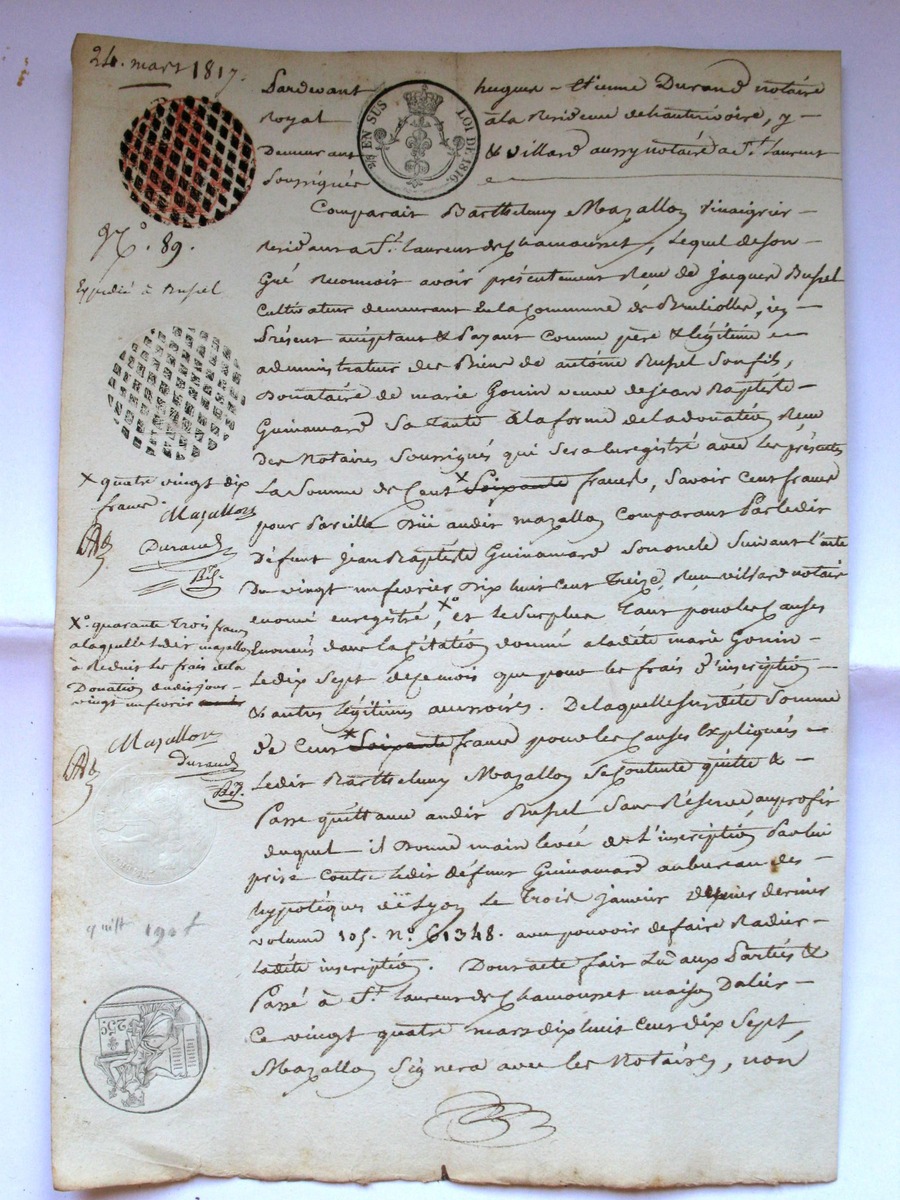 24. mars 1817.
Pardevant hugues = Etienne Durand notaire
royal à la Residence de hauterivoire, y
Demeurant & Villard aussy notaire a St. Laurent
soussignés
EN SUS LOI DE 1816.
Comparait Barthelemy Mazallon vinaigrier
residant a St. Laurent de Chamousset, lequel de son
Gré Reconnoit avoir présentement Reçu de jacques Bussel
cultivateur demeurant en la Commune de Brulioles, icy
Présent acceptant & Payant Comme père & légitime
administrateur des Biens de antoine Bussel son fils,
Donataire de marie Gouin veuve de jean Baptéste
Guinamard sa tante à la forme de la donation Reçue
Des Notaires soussignés qui sera enregistré avec les présentes
La Somme de Cent x Soixante francs, savoir Cent francs
pour pareille due audit mazallon comparant Par ledit
défunt jean Baptéste Guinamard son oncle suivant l'acte
Du vingt un fevrier dix huit cent treize, Reçu villard notaire
enregistré, Xo et le surplus tant pour les Causes
Enoncés dans la Citation donné a ladéte marie Gouin
Le dix sept de ce mois que pour les frais d'inscription
& autres légitimes accessoires. De laquelle susdéte somme
de Cent x Soixante francs pour les causes Expliquées
Ledit Barthelemy Mazallon se Contente quitte &
Passe quéttance audit Bussel sans Réserve au profit
duquel il Donne main levée de L'inscription Par lui
prise contre ledit défunt Guinamard au bureau des
hypotèques de Lyon le trois janvier dernier
volume 105. No. 61348. avec pouvoir de faire Radier
Ladéte inscription. Dont acte fait Lu aux Parties &
Passé à St. Laurent de Chamousset maison Dalier
Ce vingt quatre mars dix huit Cent dix sept,
Mazallon Signera avec les Notaires, non
No. 89.
Expedié à Bussel
X quatre vingt dix
francs Mazallon
Durand
Xo. quarante trois francs
a laquelle ledit mazallon
à Réduit les frais de la
Donation dudit jour
vingt un fevrier
Mazallon
Durand
25c